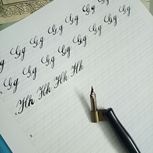 Gg Gg Gg Gg Gg
Gg Gg Gg Gg Gg Gg
Gg Gg Gg Gg Gg Gg
Hh Hh Hh Hh